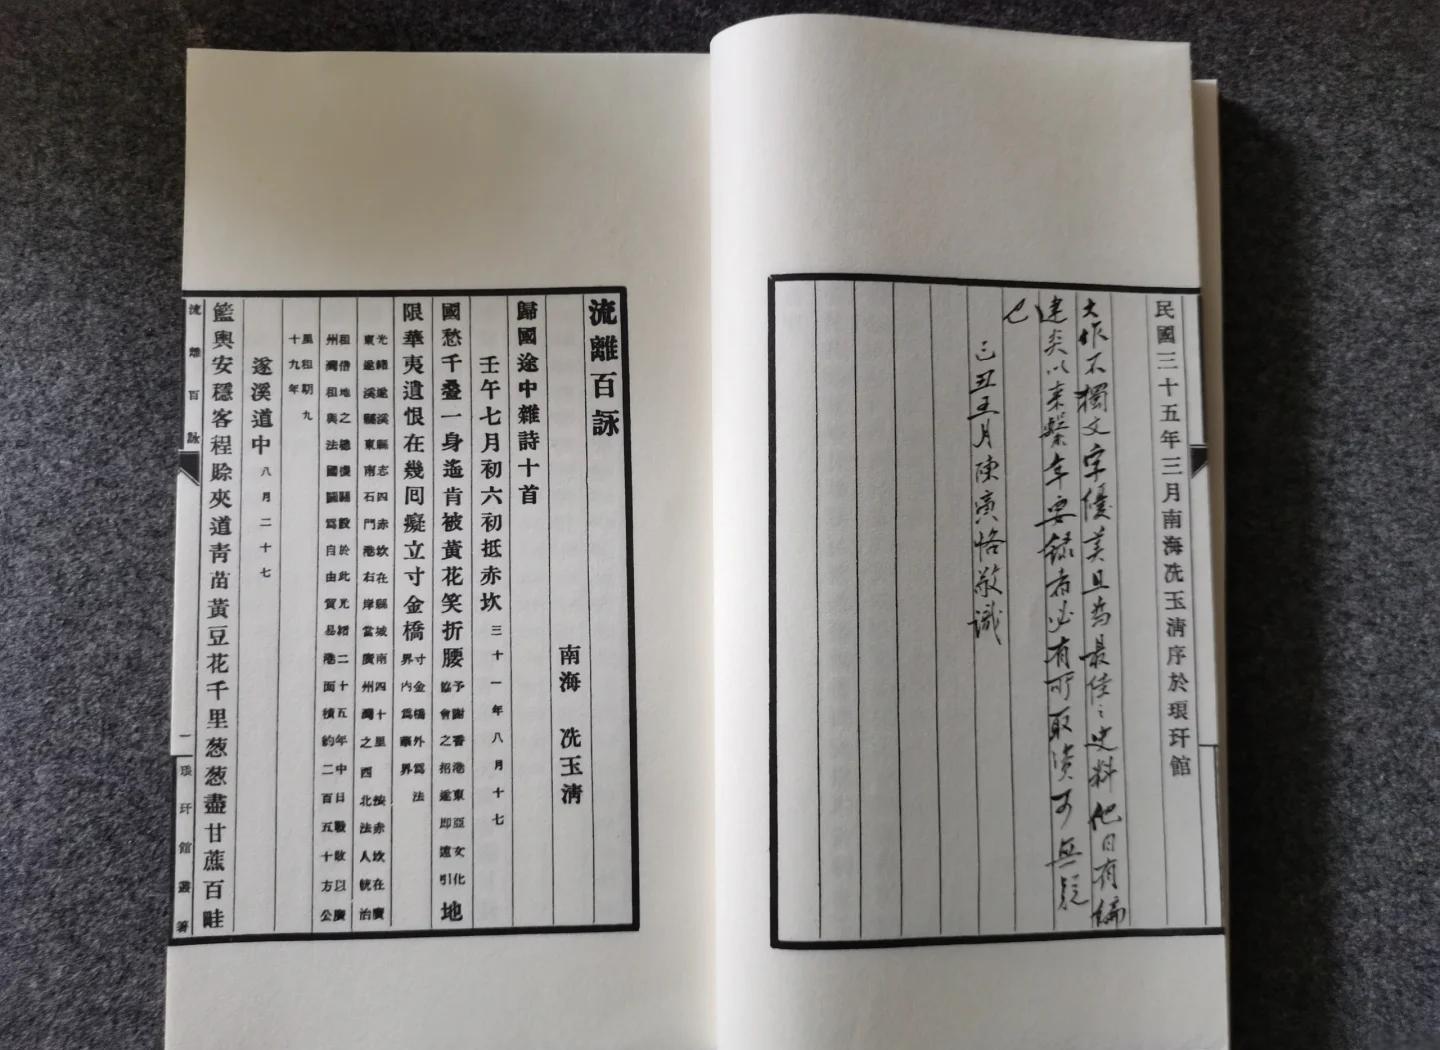 民國三十五年三月南海冼玉清序於琅玕館
大作不獨文字優美且為最佳之史料他日有編
建炎以來繫年要錄者必有所取資可無疑
也
己丑五月陳寅恪敬識
流離百詠
南海 冼玉清
歸國途中雜詩十首
壬午七月初六初抵赤坎三十一年八月十七
國愁千疊一身遙肯被黃花笑折腰予謝香港東亞文化協會之招遂即遠引地
限華夷遺恨在幾囘癡立寸金橋寸金橋外爲法界內爲華界
光緒遂溪縣志四赤坎在縣城南四十里 按赤坎在廣
東遂溪縣東南石門港右岸當廣州灣之西北法人統治
租借地之總機關設於此光緒二十五年中日戰敗以廣
州灣租與法國闢爲自由貿易港面積約二百五十方公
里租期九
十九年
遂溪道中八月二十七
籃輿安穩客程賒夾道靑苗黃豆花千里葱葱盡甘蔗百畦
流離百詠
一
琅玕館叢著